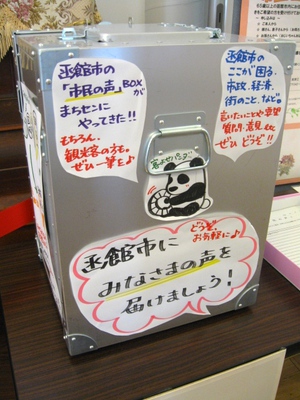 函館市の
「市民の声」BOXが
まちセンに
やってきた!!
もちろん、
観光客の方も。
ぜひ一筆を♪
函館市の
ここが困る、
市政、経済、
街のこと、など。
言いたいことや要望
質問・意見 etc
ぜひどうぞ!!
客よせパンダ
どうぞ、
お気軽に♪
函館市に
みなさまの声を
届けましょう!